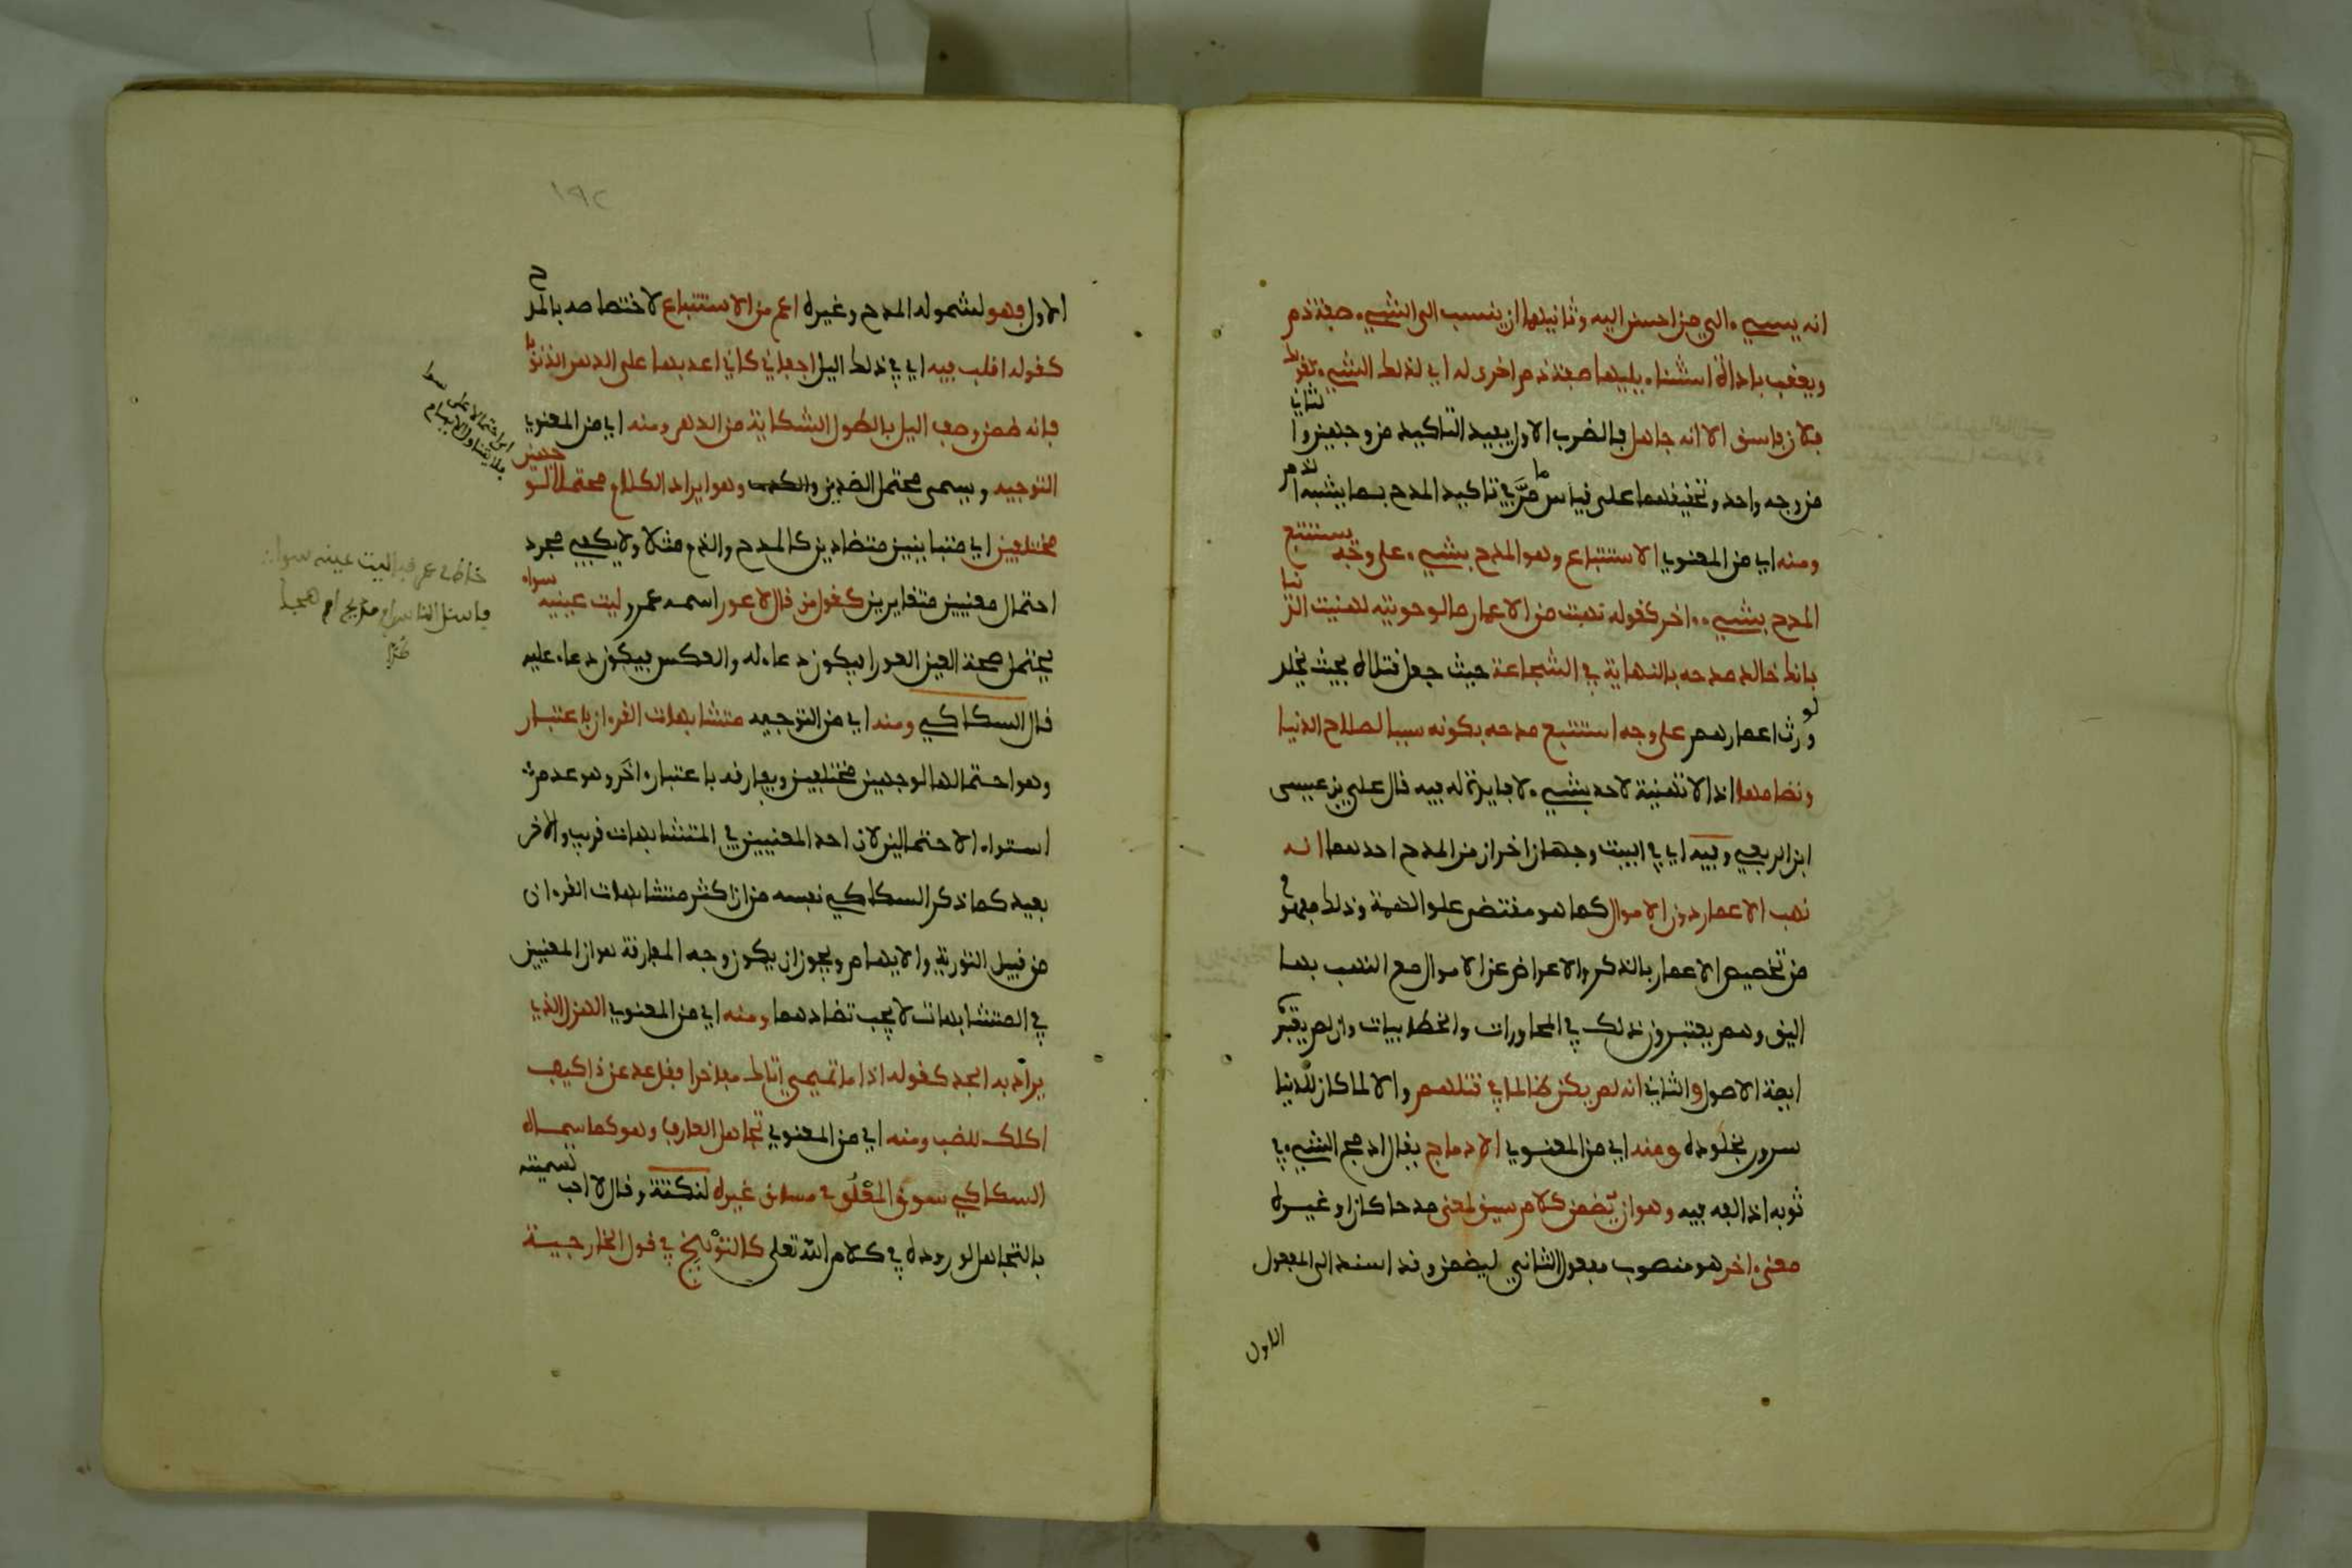 انه يسيء الى من احسن اليه وثانيهما ان ينسب الى الشيء صفة ذم
ويعقب باداة استثناء يليها صفة ذم اخرى له اي لذلك الشيء كقولك
فلان فاسق الا انه جاهل فالضرب الاول يفيد التاكيد من وجهين والثاني
من وجه واحد وتحقيقهما على قياس ما مر في تاكيد المدح بما يشبه الذم
ومنه اي من المعنوي الاستتباع وهو المدح بشيء على وجه يستتبع
المدح بشيء اخر كقوله نهبت من الاعمار ما لو حويته لهنيت الدنيا
بانك خالد مدحه بالنهاية في الشجاعة حيث جعل قتلاه بحيث يخلد
لو ورث اعمارهم على وجه استتبع مدحه بكونه سببا لصلاح الدنيا
ونظامها اذ لا تهنية لاحد بشيء لا فايدة له فيه قال علي بن عيسى
ابن الربعي وفيه اي في البيت وجهان اخران من المدح احدهما انه
نهب الاعمار دون الاموال كما هو مقتضى علو الهمة وذلك مفهوم
من تخصيص الاعمار بالذكر والاعراض عن الاموال مع النهب بها
اليق وهم يعتبرون ذلك في المحاورات والخطابيات وان لم يعتبر
ايمة الاصول والثاني انه لم يكن ظالما في قتلهم والا لما كان للدنيا
سرور بخلوده ومنه اي من المعنوي الادماج يقال ادمج الشيء في
ثوبه اذا لفه فيه وهو ان يضمن كلام سيق لمعنى مدحا كان او غيره
معنى اخر هو منصوب مفعول الثاني ليضمن وقد اسند الى المفعول
الاول
١٩٢
الاول فهو لشموله المدح وغيره اعم من الاستتباع لاختصاصه بالمدح
كقوله اقلب فيه اي في ذلك اليل اجفاني كاني اعد بها على الدهر الذنوبا
فانه ضمن وصف اليل بالطول الشكاية من الدهر ومنه اي من المعنوي
التوجيه ويسمى محتمل الضدين وهو ايراد الكلام محتملا لوجهين
مختلفين اي متباينين متضادين كالمدح والذم مثلا ولا يكفي مجرد
احتمال معنيين متغايرين كقول من قال لاعور اسمه عمرو ليت عينيه سواء
يحتمل صحة العين العورا فيكون دعاء له والعكس فيكون دعاء عليه
قال السكاكي ومنه اي من التوجيه متشابهات القرءان باعتبار
وهو احتمالها لوجهين مختلفين ويفارقه باعتبار اخر وهو عدم
استواء الاحتمالين لان احد المعنيين في المتشابهات قريب والاخر
بعيد كما ذكر السكاكي نفسه من ان اكثر متشابهات القرءان
من قبيل التورية والايهام ويجوز ان يكون وجه المفارقة هو ان المعنيين
في المتشابهات لا يجب تضادهما ومنه اي من المعنوي الهزل الذي
يراد به الجد كقوله اذا ما تميمي اتاك مفاخرا فقل عد عن ذا كيف
اكلك للضب ومنه اي من المعنوي تجاهل العارف وهو كما سماه
السكاكي سوق المعلوم مساق غيره لنكتة وقال لا احب تسميته
بالتجاهل لوروده في كلام الله تعلى كالتوبيخ في قول الخارجية
اي احتمالا على سوا
فلا يتناول الايهام
خاط لي عمرو قبا ليت عينيه سواء
فاسئل الناس امديح ام هجا